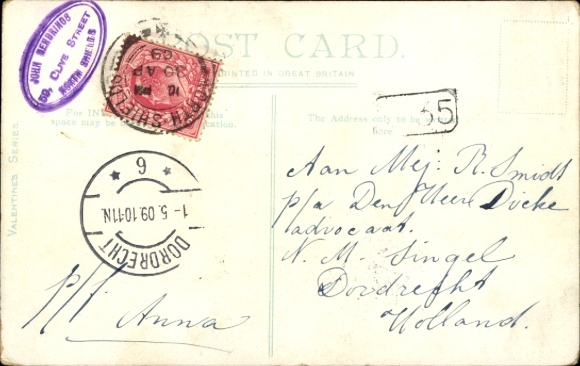 JOHN HENDRINGS
59, CLIVE STREET
NORTH SHIELDS
POST CARD.
PRINTED IN GREAT BRITAIN
NORTH SHIELDS
30 AP
09
35
For IN
this
space may be
The Address only to be
here
VALENTINE'S SERIES
6
1-5.09.10-11N.
DORDRECHT
Aan Mej. R. Smidt
p/a Den Heer Dicke
advocaat.
N. M. Singel
Dordrecht
Holland.
p/f
Anna